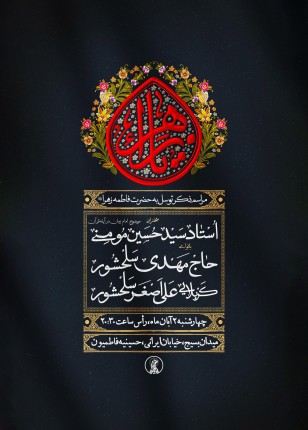 یا زهرا
مراسم ذکر توسل به حضرت فاطمه زهرا
سخنران: موضوع: امام زمان در آینه قرآن
استاد سید حسین مومنی
بانوای:
حاج مهدی سلحشور
کربلایی علی اصغر سلحشور
چهارشنبه ۲ آبان ماه، رأس ساعت ۲۰:۳۰
میدان بسیج، خیابان ایرانی، حسینیه فاطمیون